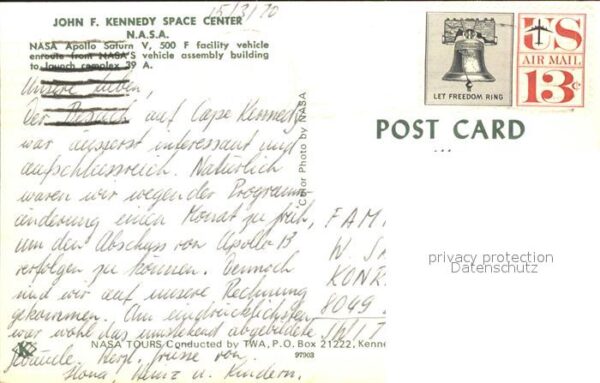 15/3/70
JOHN F. KENNEDY SPACE CENTER
N.A.S.A.
NASA Apollo Saturn V, 500 F facility vehicle
enroute from NASA'S vehicle assembly building
to launch complex 39 A.
Unsere Lieben,
Der Besuch auf Cape Kennedy
war äusserst interessant und
aufschlussreich. Natürlich
waren wir wegen der Programm-
änderung einen Monat zu früh,
um den Abschuss von Apollo 13
verfolgen zu können. Dennoch
sind wir auf unsere Rechnung
gekommen. Am eindrücklichsten
war wohl das umstehend abgebildete
Gebäude. Herzl. Grüsse von
Ilona, Heinz u. Kindern.
Color Photo by NASA
LET FREEDOM RING
US
AIR MAIL
13¢
POST CARD
FAM
W. SA
KONR
8049
privacy protection
Datenschutz
K
NASA TOURS Conducted by TWA, P.O. Box 21222, Kenne
97903